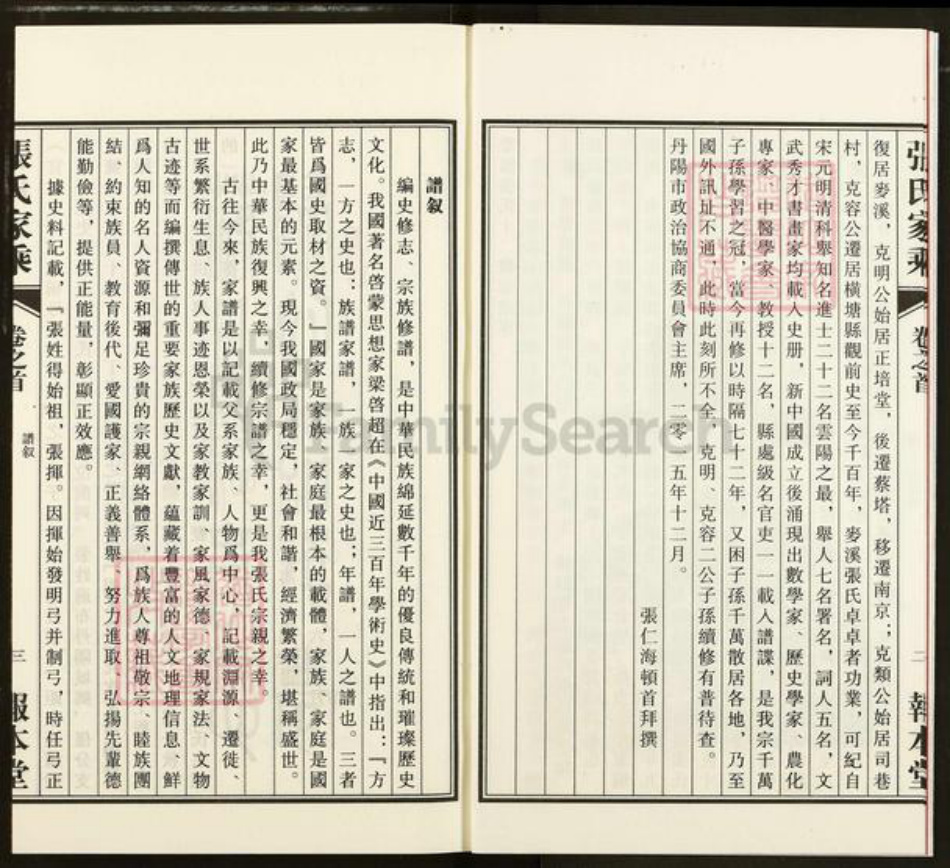 張氏家乘
卷之首
二
報本堂
復居麥溪，克明公始居正培堂，後遷蔡塔，移遷南京；克類公始居司巷
村，克容公遷居橫塘縣觀前史至今千百年，麥溪張氏卓卓者功業，可紀自
宋元明清科舉知名進士二十二名雲陽之最，舉人七名署名，詞人五名，文
武秀才書畫家均載人史册，新中國成立後涌現出數學家、歷史學家、農化
專家、中醫學家、教授十二名，縣處級名官吏一一載入譜諜，是我宗千萬
子孫學習之冠，當今再修以時隔七十二年，又困子孫千萬散居各地，乃至
國外訊址不通，此時此刻所不全，克明、克容二公子孫續修有普待查。
丹陽市政治協商委員會主席，二零一五年十二月。
張仁海頓首拜撰
譜叙
編史修志、宗族修譜，是中華民族綿延數千年的優良傳統和璀璨歷史
文化。我國著名啓蒙思想家梁啓超在《中國近三百年學術史》中指出：『方
志，一方之史也；族譜家譜，一族一家之史也；年譜，一人之譜也。三者
皆爲國史取材之資。』國家是家族、家庭最根本的載體，家族、家庭是國
家最基本的元素。現今我國政局穩定，社會和諧，經濟繁榮，堪稱盛世。
此乃中華民族復興之幸，續修宗譜之幸，更是我張氏宗親之幸。
古往今來，家譜是以記載父系家族、人物爲中心，記載淵源、遷徙、
世系繁衍生息、族人事迹恩榮以及家教家訓、家風家德、家規家法、文物
古迹等而編撰傳世的重要家族歷史文獻，蘊藏着豐富的人文地理信息、鮮
爲人知的名人資源和彌足珍貴的宗親網絡體系，爲族人尊祖敬宗、睦族團
結、約束族員、教育後代、愛國護家、正義善舉、努力進取、弘揚先輩德
能勤儉等，提供正能量，彰顯正效應。
據史料記載，『張姓得始祖，張揮。因揮始發明弓并制弓，時任弓正
張氏家乘
卷之首
譜叙
三
報本堂
FamilySearch